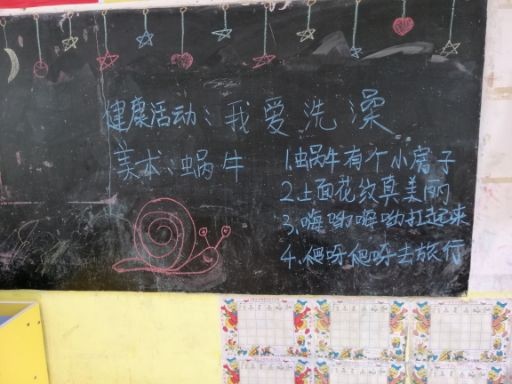 健康活动：我爱洗澡
美术：蜗牛
1.蜗牛有个小房子
2.上面花纹真美丽
3.嗨哟嗨哟扛起来
4.爬呀爬呀去旅行